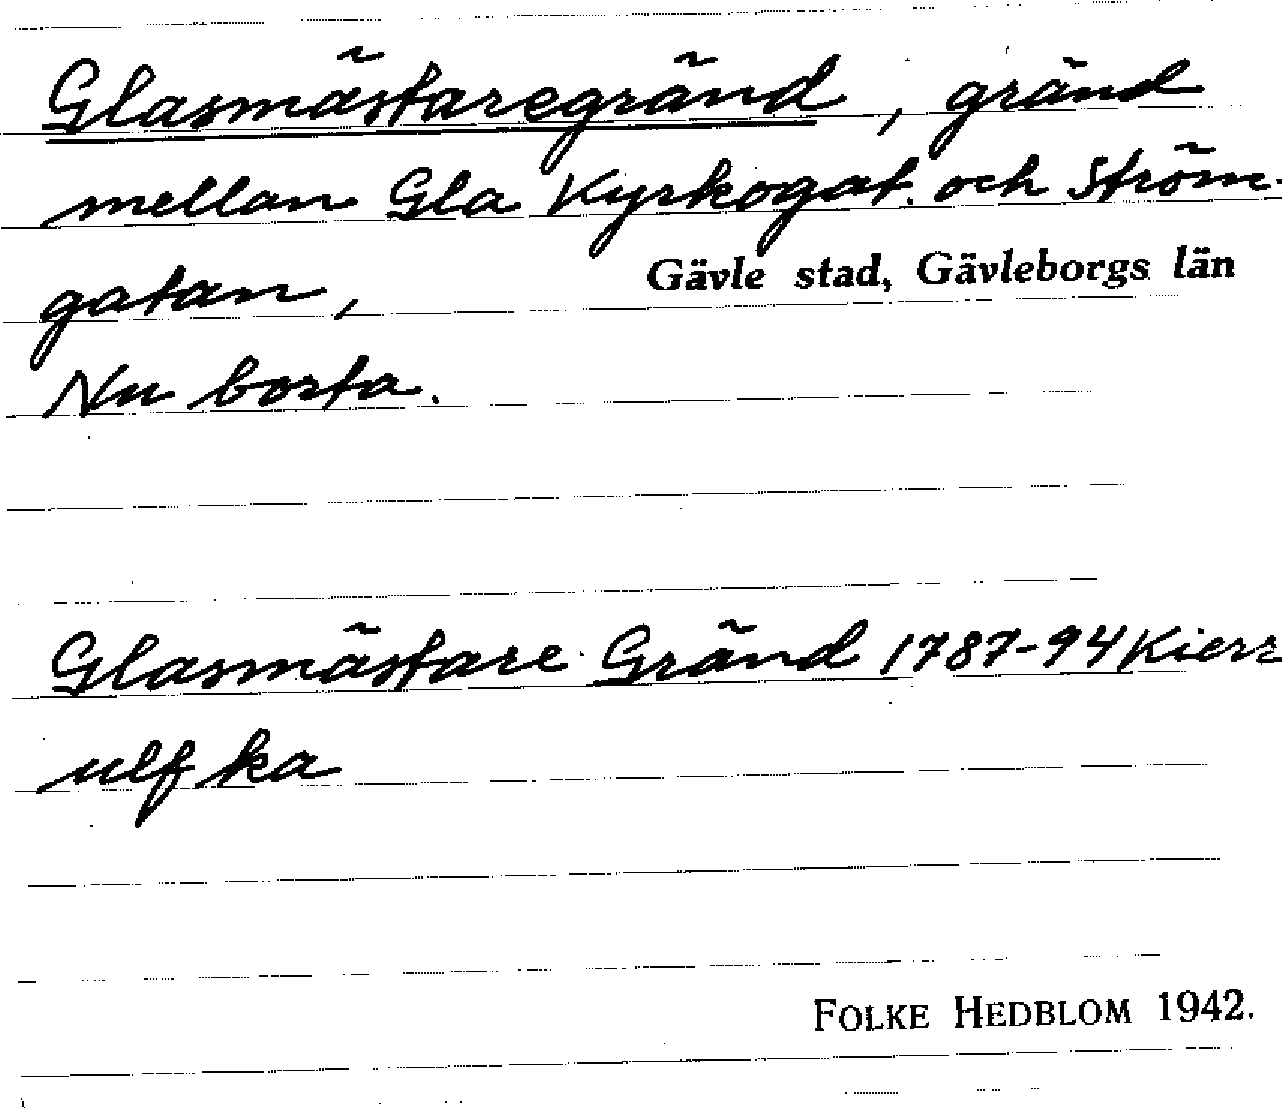 Glasmästaregränd, gränd
mellan Gla Kyrkogat. och Ström-
gatan,
Gävle stad, Gävleborgs län
Nu borta.
Glasmästare Gränd 1787-94 Kierr
ulf ka
FOLKE HEDBLOM 1942.